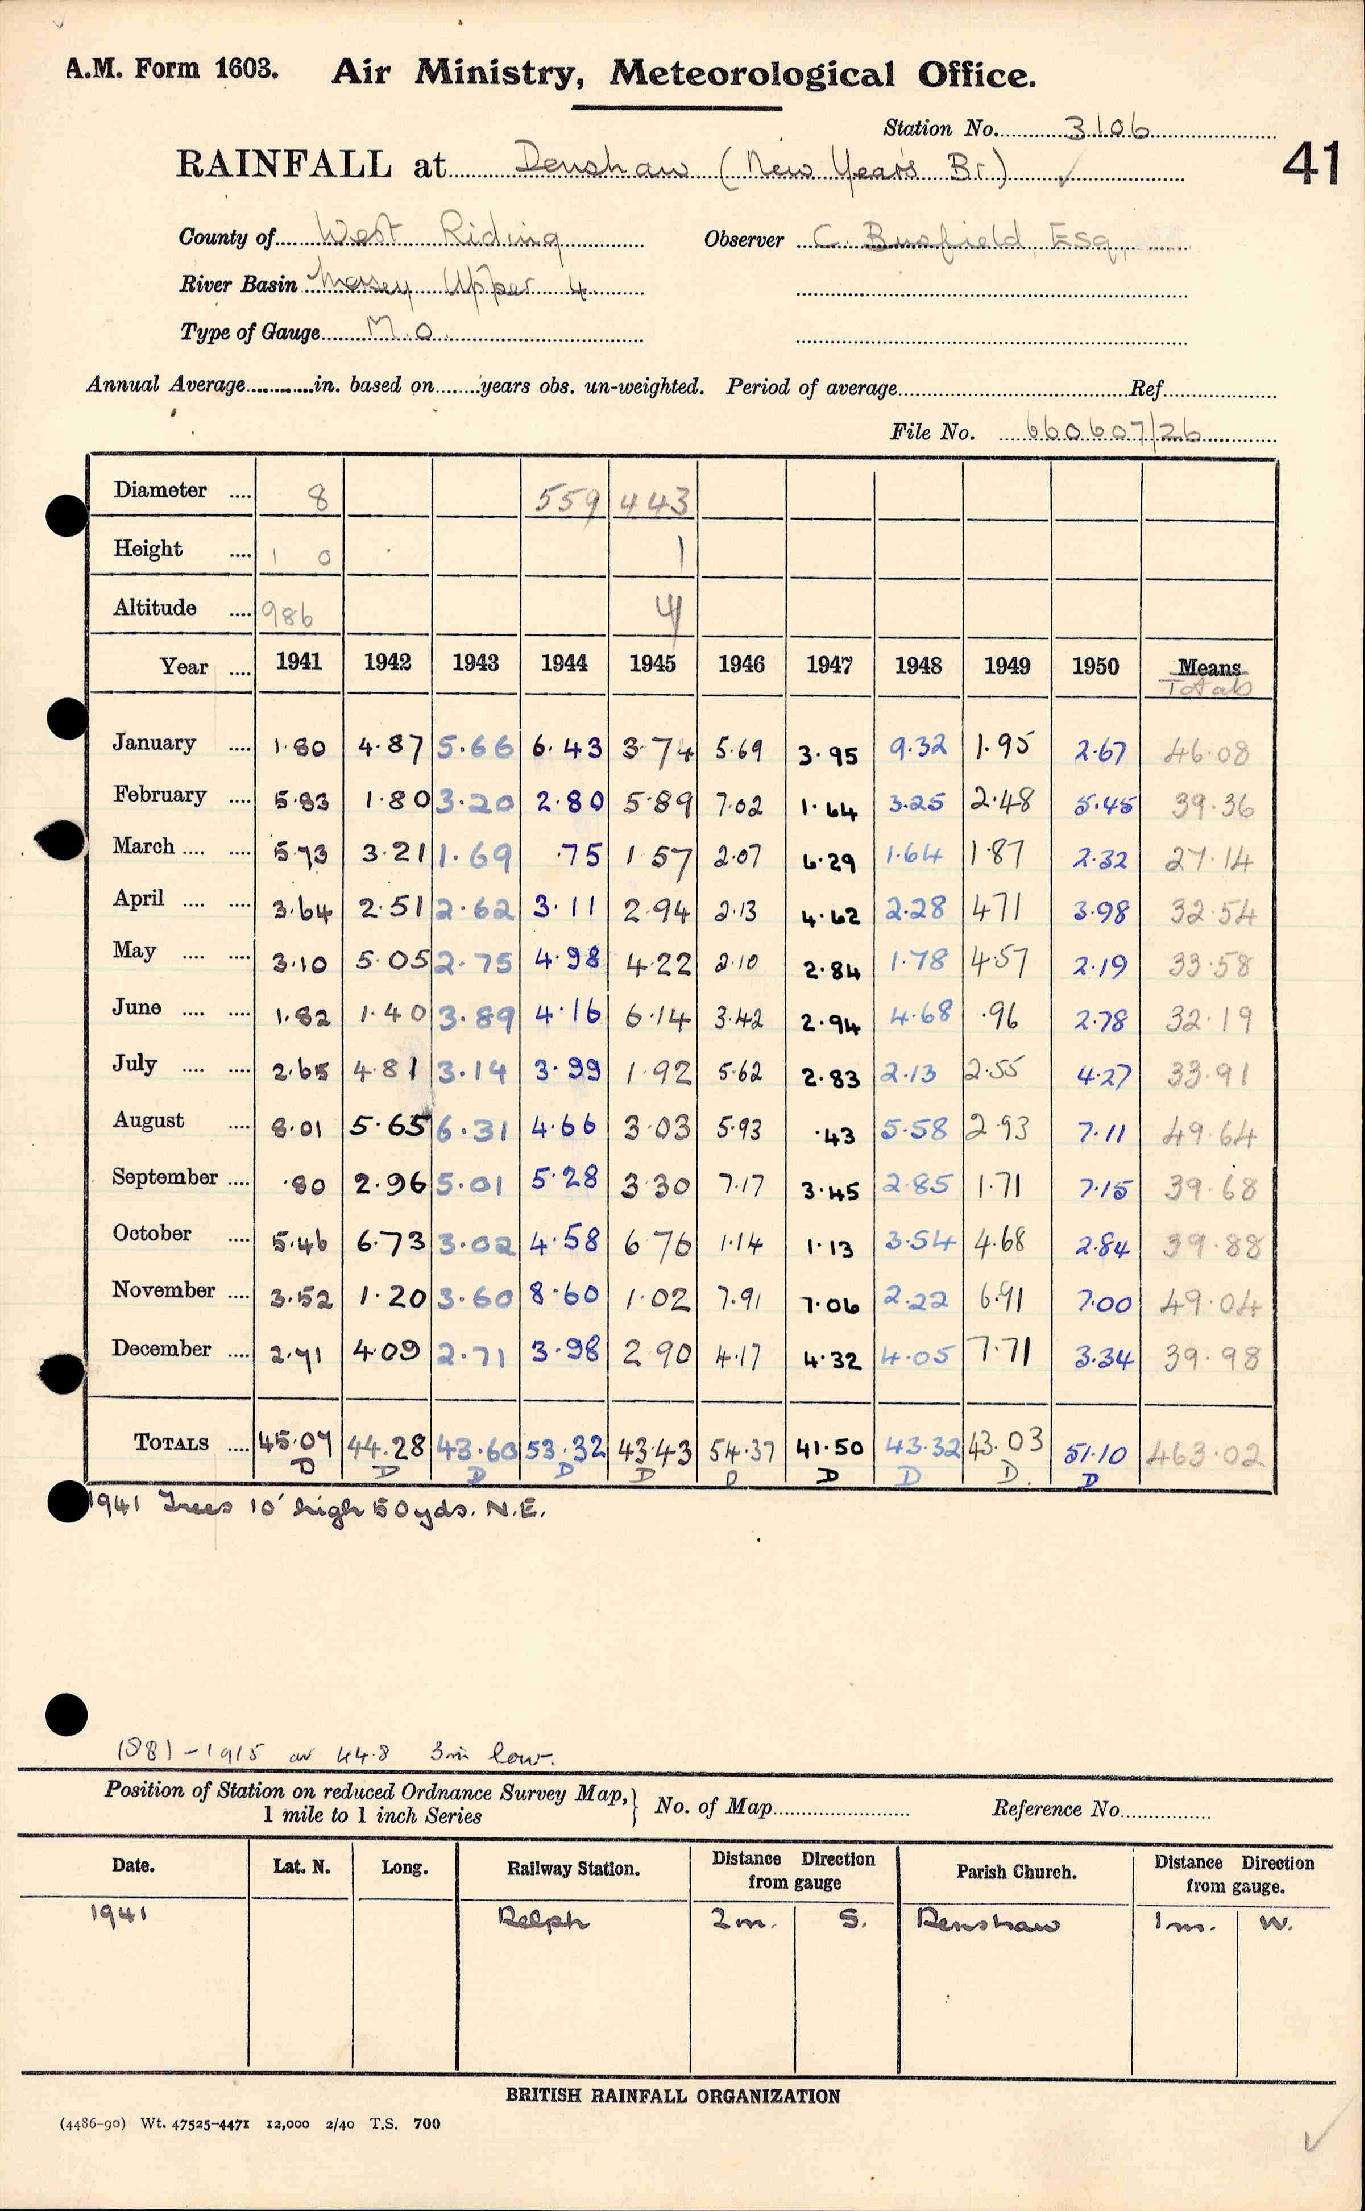 A.M. Form 1603. Air Ministry, Meteorological Office.
Station No. 3106
RAINFALL at Denshaw (New Years Br) ✓ 41
County of West Riding Observer C. Busfield, Esq.,
River Basin Mersey Upper 4
Type of Gauge M.O.
Annual Average in. based on years obs. un-weighted. Period of average Ref
File No. 660607/26
Diameter .... 8 559 443
Height .... 1 0 1
Altitude .... 986
Year .... 1941 1942 1943 1944 1945 1946 1947 1948 1949 1950 Means
Totals
January .... 1.80 4.87 5.66 6.43 3.74 5.69 3.95 9.32 1.95 2.67 46.08
February .... 5.83 1.80 3.20 2.80 5.89 7.02 1.64 3.25 2.48 5.45 39.36
March .... .... 5.73 3.21 1.69 .75 1.57 2.07 6.29 1.64 1.87 2.32 27.14
April .... .... 3.64 2.51 2.62 3.11 2.94 2.13 4.62 2.28 4.71 3.98 32.54
May .... .... 3.10 5.05 2.75 4.98 4.22 2.10 2.84 1.78 4.57 2.19 33.58
June .... .... 1.82 1.40 3.89 4.16 6.14 3.42 2.94 4.68 .96 2.78 32.19
July .... .... 2.65 4.81 3.14 3.99 1.92 5.62 2.83 2.13 2.55 4.27 33.91
August .... 8.01 5.65 6.31 4.66 3.03 5.93 .43 5.58 2.93 7.11 49.64
September .... .80 2.96 5.01 5.28 3.30 7.17 3.45 2.85 1.71 7.15 39.68
October .... 5.46 6.73 3.02 4.58 6.76 1.14 1.13 3.54 4.68 2.84 39.88
November .... 3.52 1.20 3.60 8.60 1.02 7.91 7.06 2.22 6.91 7.00 49.04
December .... 2.71 4.09 2.71 3.98 2.90 4.17 4.32 4.05 7.71 3.34 39.98
TOTALS .... 45.07 44.28 43.60 53.32 43.43 54.37 41.50 43.32 43.03 51.10 463.02
D D D D D D D D D. D
1941 Trees 10' high 50yds. N.E.
1881-1915 av 44.8 3in low.
Position of Station on reduced Ordnance Survey Map, } No. of Map Reference No.
1 mile to 1 inch Series
Date. Lat. N. Long. Railway Station. Distance Direction from gauge Parish Church. Distance Direction from gauge.
1941 Delph 2m. S. Denshaw 1m. W.
BRITISH RAINFALL ORGANIZATION
(4486-90) Wt. 47525-4471 12,000 2/40 T.S. 700
✓